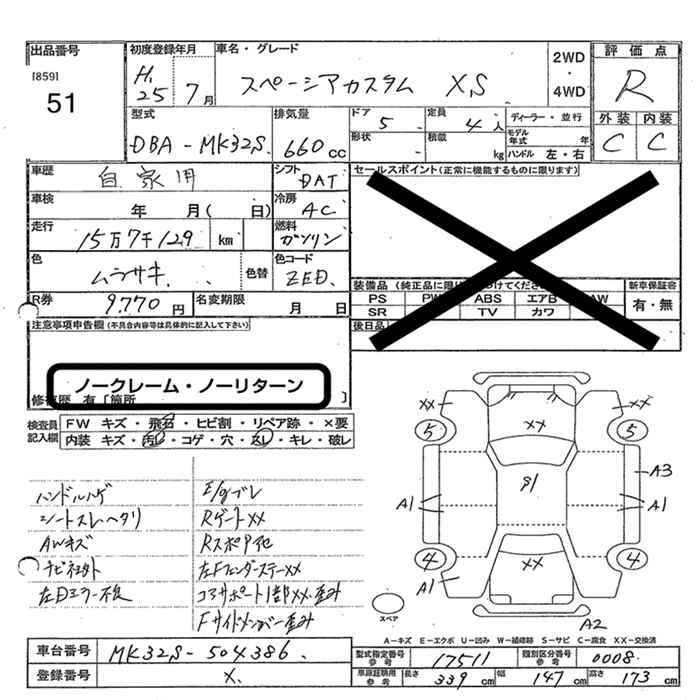 出品番号
[859]
51
初度登録年月
H.25 7月
車名・グレード
スペーシアカスタム XS
2WD
・
4WD
評価点
R
型式
DBA-MK32S.
排気量
660 cc
ドア
5
定員
4人
形状
積載
kg
ディーラー・並行
モデル年式 年
ハンドル 左・右
外装 内装
C C
車歴
自家用
シフト
DAT
車検
年 月( 日)
冷房
AC
走行
15万7千129 km
燃料
ガソリン
色
ムラサキ
色替
色コード
ZED.
R券
9,770円
名変期限
月 日
セールスポイント(正常に機能するものに限ります)
装備品
PS PW ABS エアB AW
SR TV カワ
新車保証書
有・無
後日品
注意事項申告欄(不具合内容等は具体的に記入して下さい)
ノークレーム・ノーリターン
修復歴 有「箇所 」
検査員記入欄
FW キズ・飛石・ヒビ割・リペア跡・×要
内装 キズ・汚レ・コゲ・穴・スレ・キレ・破レ
ハンドルハゲ
シートスレヘタリ
AWキズ
E/gブレ
RゲートXX
左FフェンダーステーXX
コアサポート1部XX.歪み
Fサイドメンバー歪み
XX XX
XX
5 5
91
A1 A1
A3
4 4
XX
A1
A2
スペア
A-キズ E-エクボ U-凹み W-補修跡 S-サビ C-腐食 XX-交換済
車台番号
MK32S-504386.
登録番号
X.
型式指定番号 参考
17511
類別区分番号 参考
0008.
車庫証明用 参考
長さ 339 cm
幅 147 cm
高さ 173 cm